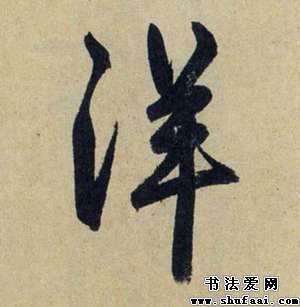 洋
书法爱网
www.shufaai.com